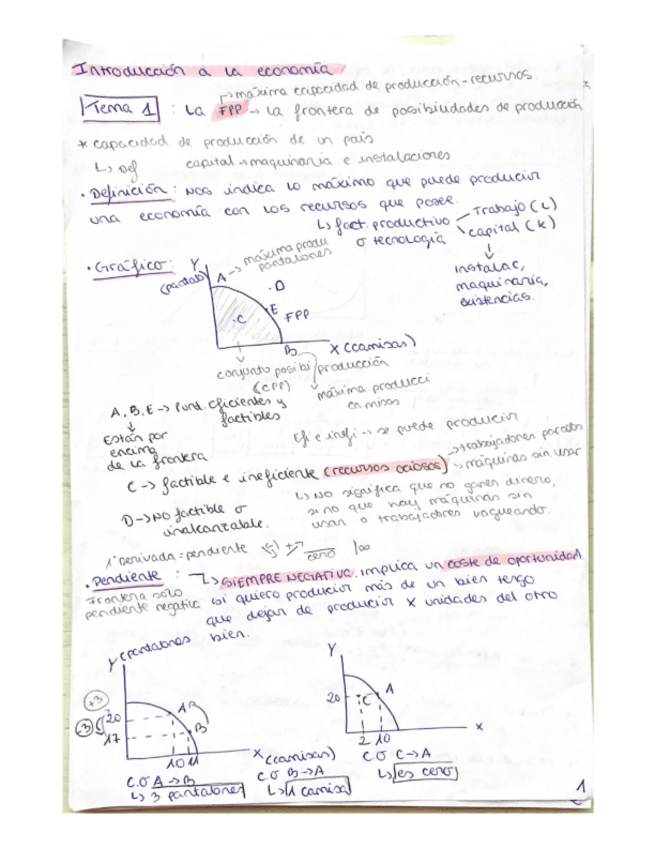 Introducción a la economía
→ máxima capacidad de producción - recursos
Tema 1 : La FPP → La frontera de posibilidades de producción
* capacidad de producción de un país
↳ Def capital → maquinaria e instalaciones
· Definición : Nos indica lo máximo que puede producir
una economía con los recursos que posee.
↳ fact. productivo Trabajo (L)
o tecnología capital (K)
↓
Instalac,
maquinaria,
existencias.
· Gráfico: Y A → máxima produ
(pantalo) pantalones
· D
E FPP
· C
B X (camisas)
conjunto posibi producción
(CPP) máxima producci
camisas
A, B, E → Punt. eficientes y
factibles
↓
Están por
encima
de la frontera
Efi e inefi → se puede producir
→ trabajadores parados
C → factible e ineficiente (recursos ociosos) → máquinas sin usar
↳ No significa que no ganes dinero,
si no que hay máquinas sin
usar o trabajadores vagueando.
D → No factible o
inalcanzable.
1ª derivada = pendiente cero
· Pendiente : ↳ SIEMPRE NEGATIVA. implica un coste de oportunidad
Frontera solo
pendiente negativa
(si quiero producir más de un bien tengo
que dejar de producir x unidades del otro
bien.
Y (pantalones
+3
20 A
-3
17 B
10 11 X (camisas)
C.O A → B
↳ 3 pantalones
C.O B → A
↳ 1 camisa
Y
20 C A
2 10 X
C.O C → A
↳ es cero
1